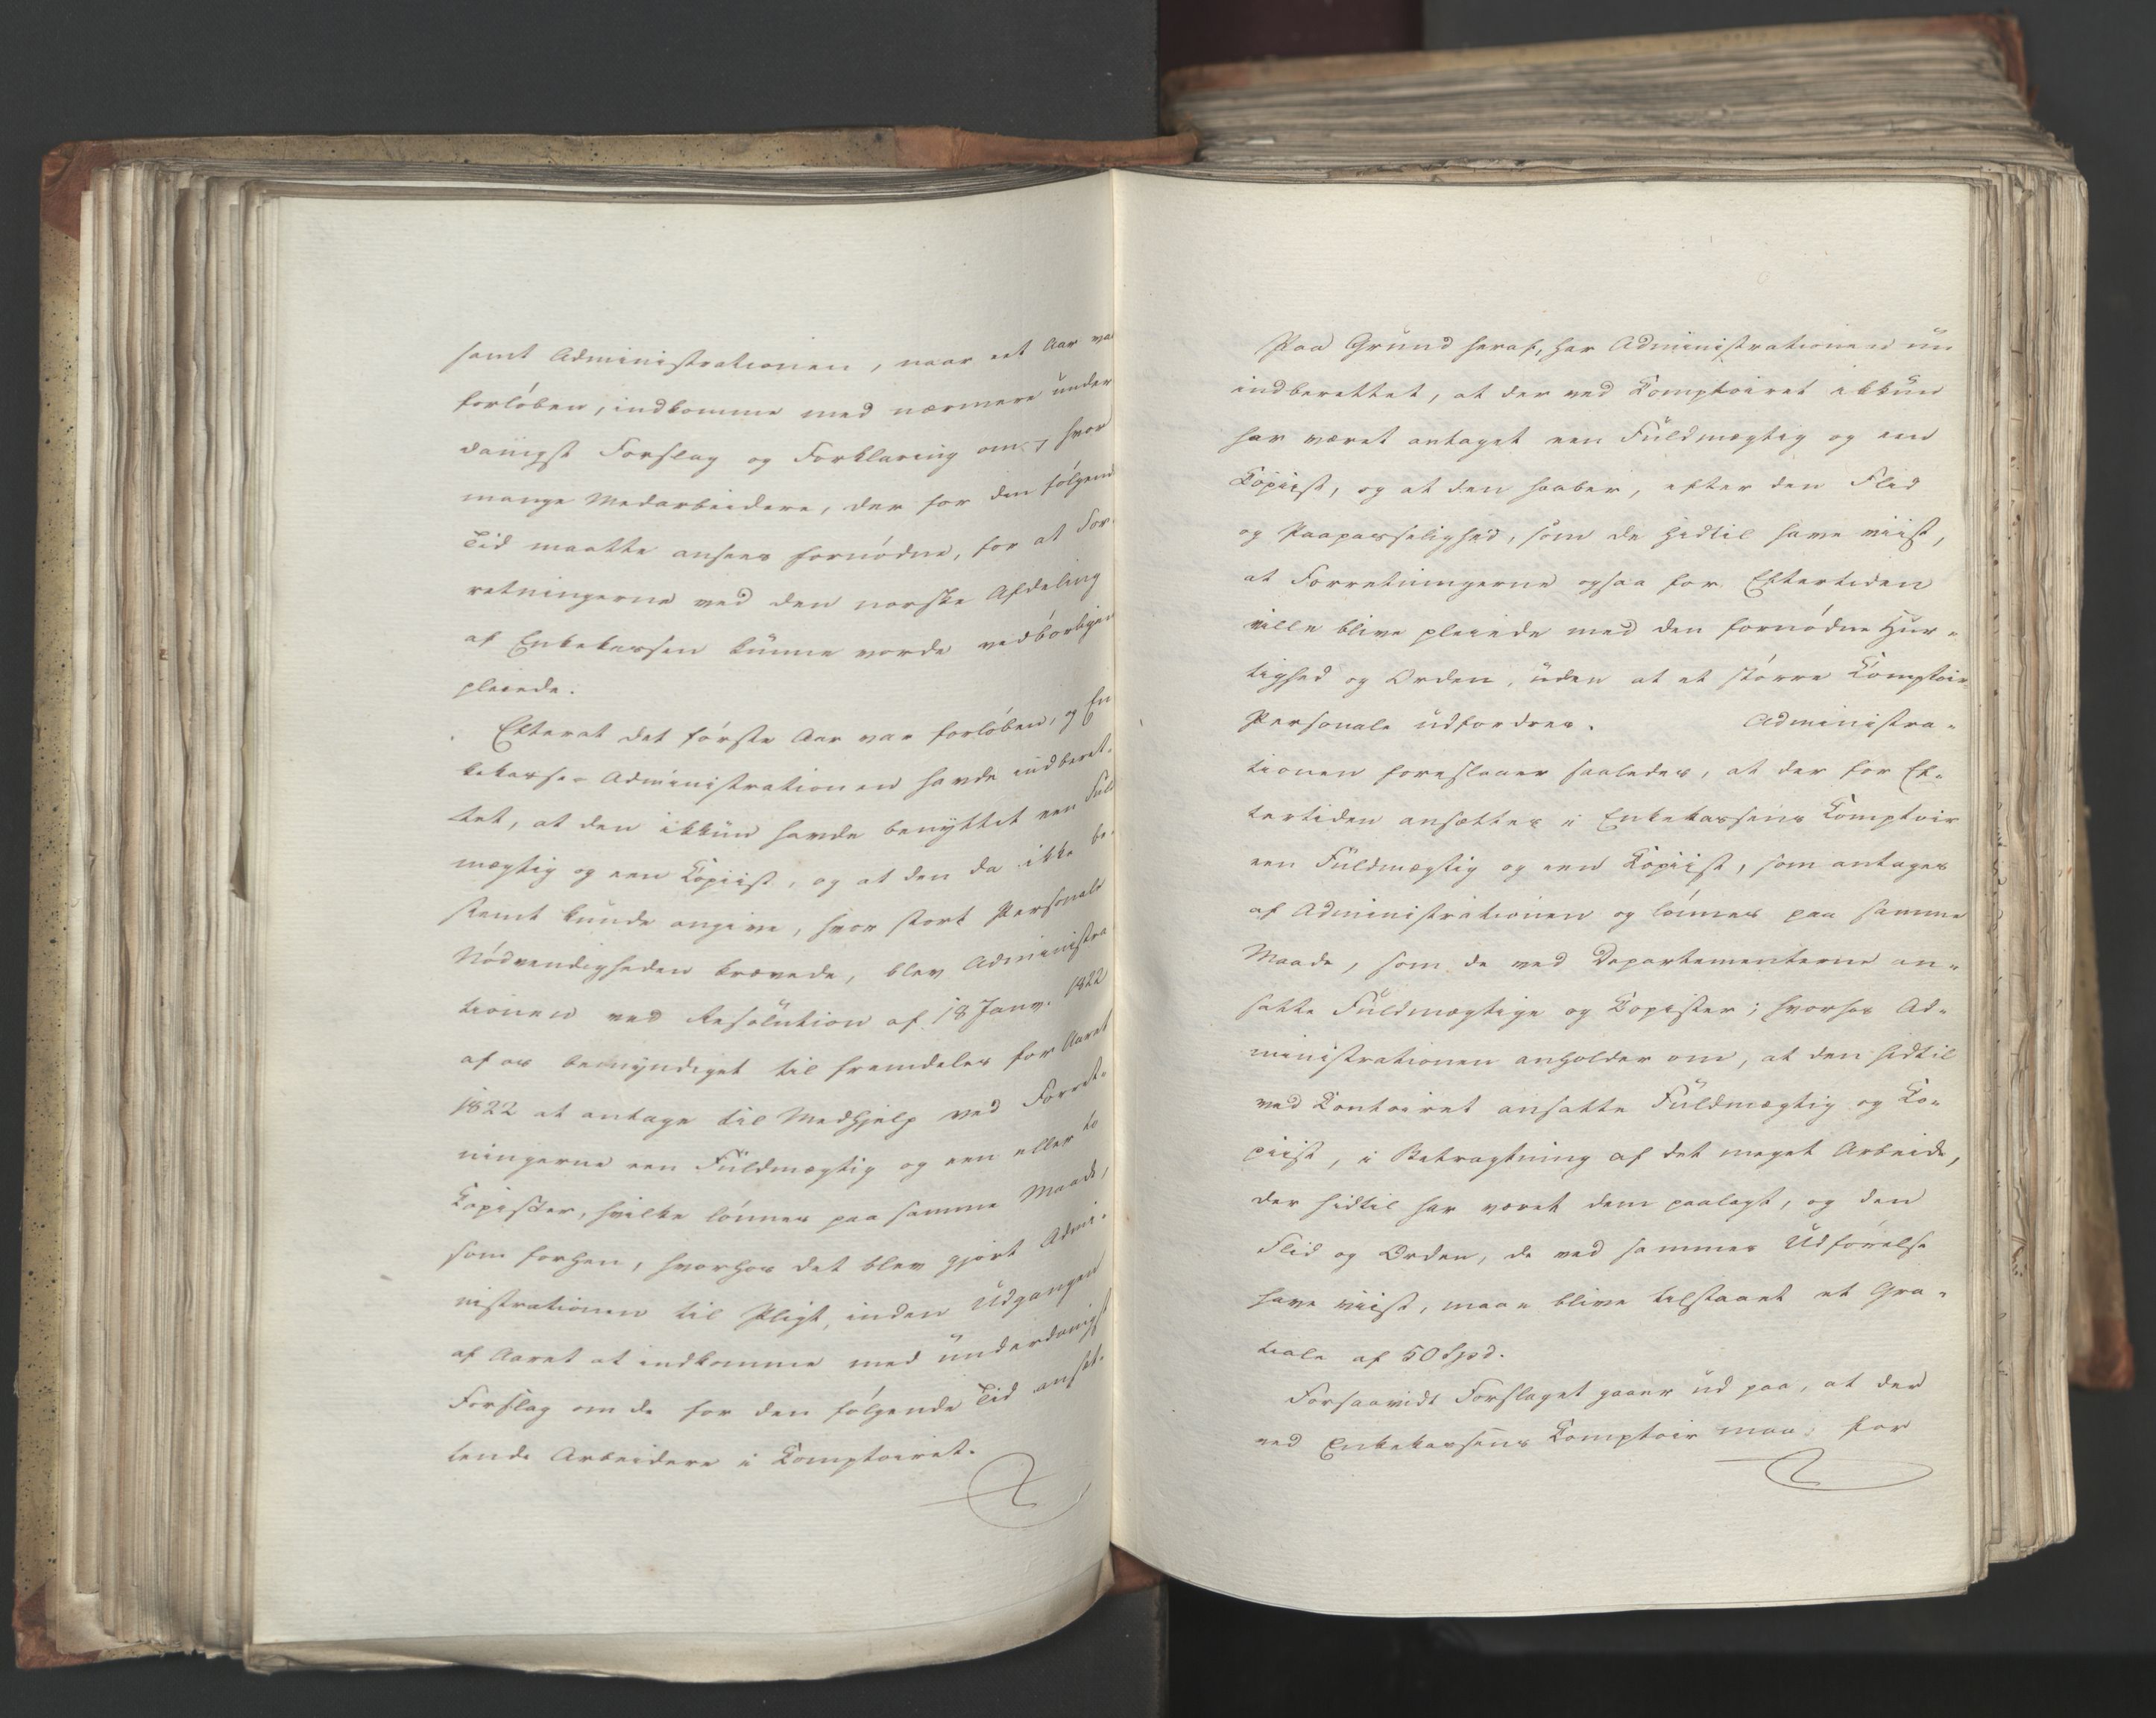 samt Administrationen, naar eet Aar var
forløben, indkomme med nærmere under
danigst Forslag og Forklaring om, hvor
mange Medarbeidere, der for den følgende
Tid maatte ansees fornødne, for at For-
retningerne ved den norske Afdeling
af Enkekassen kunne vorde vedbørligen
pleiede.
Efterat det første Aar var forløben, og En
kekasse-Administrationen havde indberet-
tet, at den ikkun havde benyttet een Fuld
mægtig og een Kopiist, og at den da ikke be-
stemt kunde angive, hvor stort Personale
Nødvendigheden krævede, blev Administra
tionen ved Resolution af 18 Janv. 1822
af os bemyndiget til fremdeles for Aaret
1822 at antage til Medhjelp ved Forret-
ningerne een Fuldmægtig og een eller to
Kopister, hvilke lønnes paa samme Maade,
som forhen, hvorhos det blev gjort Admi-
nistrationen til Pligt, inden Udgangen
af Aaret at indkomme med underdanigst
Forslag om de for den følgende Tid anset-
tende Arbeidere i Comptoiret.
Paa Grund heraf, har Administrationen nu
indberettet, at der ved Comptoiret ikkun
har været antaget een Fuldmægtig og een
Kopiist, og at den haaber, efter den Flid
og Paapasselighed, som de hidtil have viist,
at Forretningerne ogsaa for Eftertiden
ville blive pleiede med den fornødne Hur-
tighed og Orden, uden at et større Comptoir
Personale udfordres. Administra-
tionen foreslaaer saaledes, at der for Ef-
tertiden ansættes i Enkekassens Comptoir
een Fuldmægtig og een Kopiist, som antages
af Administrationen og lønnes paa samme
Maade, som de ved Departementerne an-
satte Fuldmægtige og Kopister; hvorhos Ad-
ministrationen anholder om, at den hidtil
ved Contoiret ansatte Fuldmægtig og Ko-
piist, i Betragtning af det meget Arbeide,
der hidtil har været dem paalagt, og den
Flid og Orden, de ved sammes Udførelse
have viist, maae blive tilstaaet et Gra-
tiale af 50 Spd.
Forsaavidt Forslaget gaaer ud paa, at der
ved Enkekassens Comptoir maa for